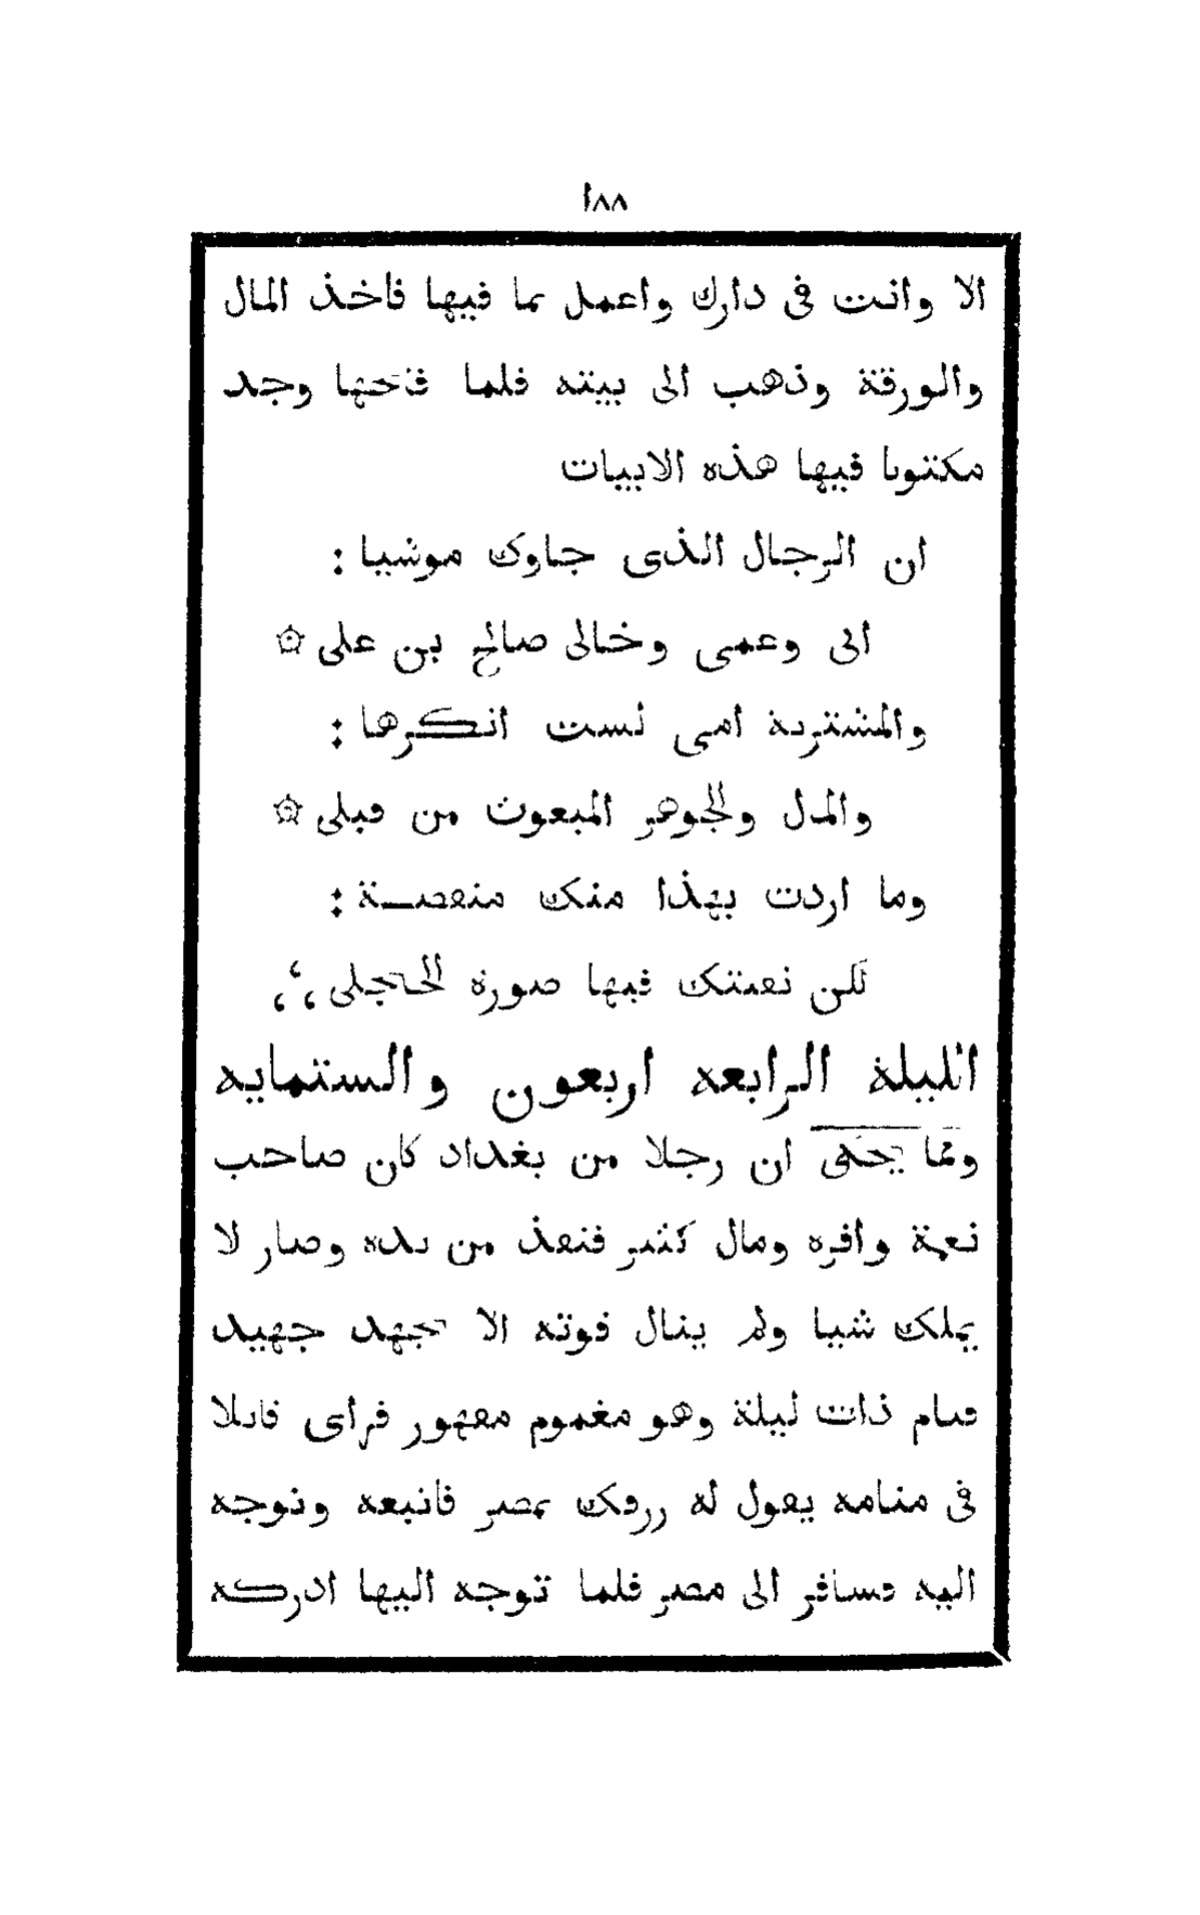 ١٨٨
الا وانت فى دارك واعمل بما فيها فاخذ المال
والورقة وذهب الى بيته فلما فتحها وجد
مكتوبا فيها هذه الابيات
ان الرجال الذى جاوك موشيا :
ابى وعمى وخالى صالح بن على ۞
والمشترية امى لست انكرها :
والمال والجوهر المبعوث من قبلى ۞
وما اردت بهذا منك منقصة :
لكن نعيتك فيها صورة الخجلى
الليلة الرابعه اربعون والستمايه
ومما يحكى ان رجلا من بغداد كان صاحب
نعمة وافره ومال كثير فنفذ من يده وصار لا
يملك شيا ولم ينال قوته الا بجهد جهيد
فنام ذات ليلة وهو مغموم مقهور فراى قايلا
فى منامه يقول له رزقك بمصر فاتبعه وتوجه
اليه فسافر الى مصر فلما توجه اليها ادركه